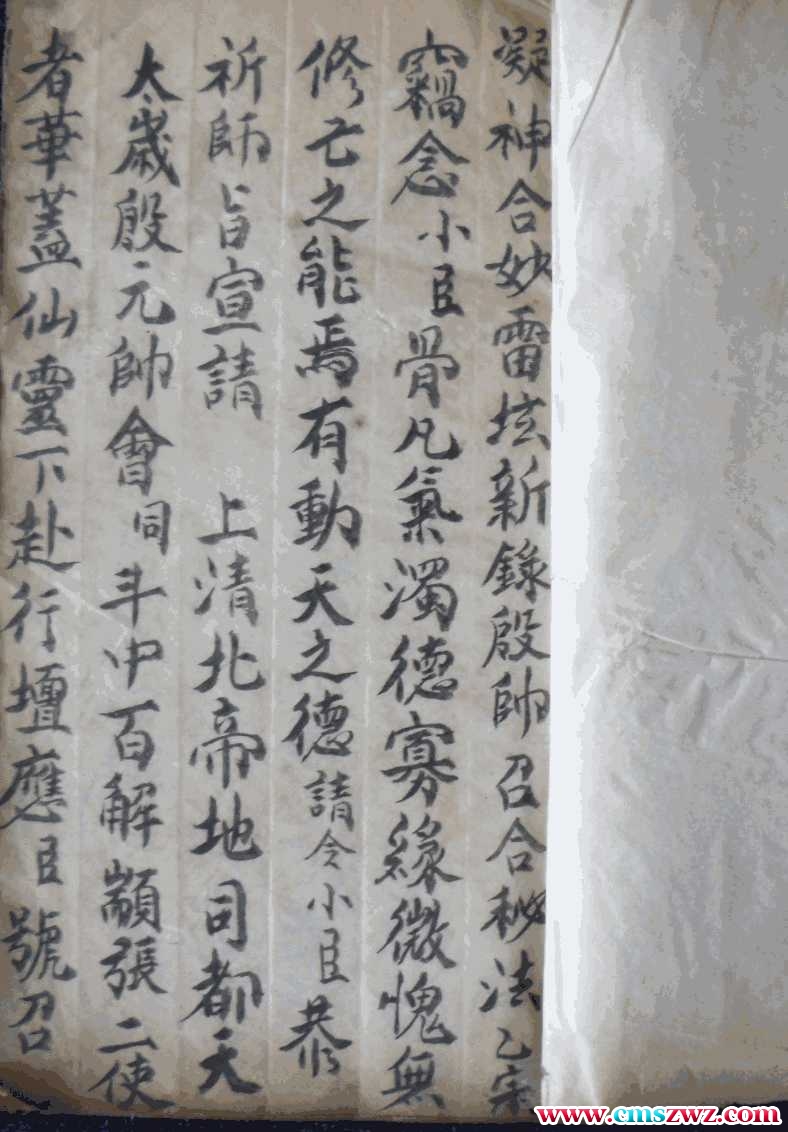 凝神合妙雷坛新錄殷帥召合秘法乙宗
竊念小臣骨凡氣濁德寡緣微愧無
修亡之能焉有動天之德請令小臣恭
祈師旨宣請 上清北帝地司都天
太歲殷元帥會同斗中百解顓張二使
者華蓋仙靈下赴行壇應臣號召
www.cmszwz.com